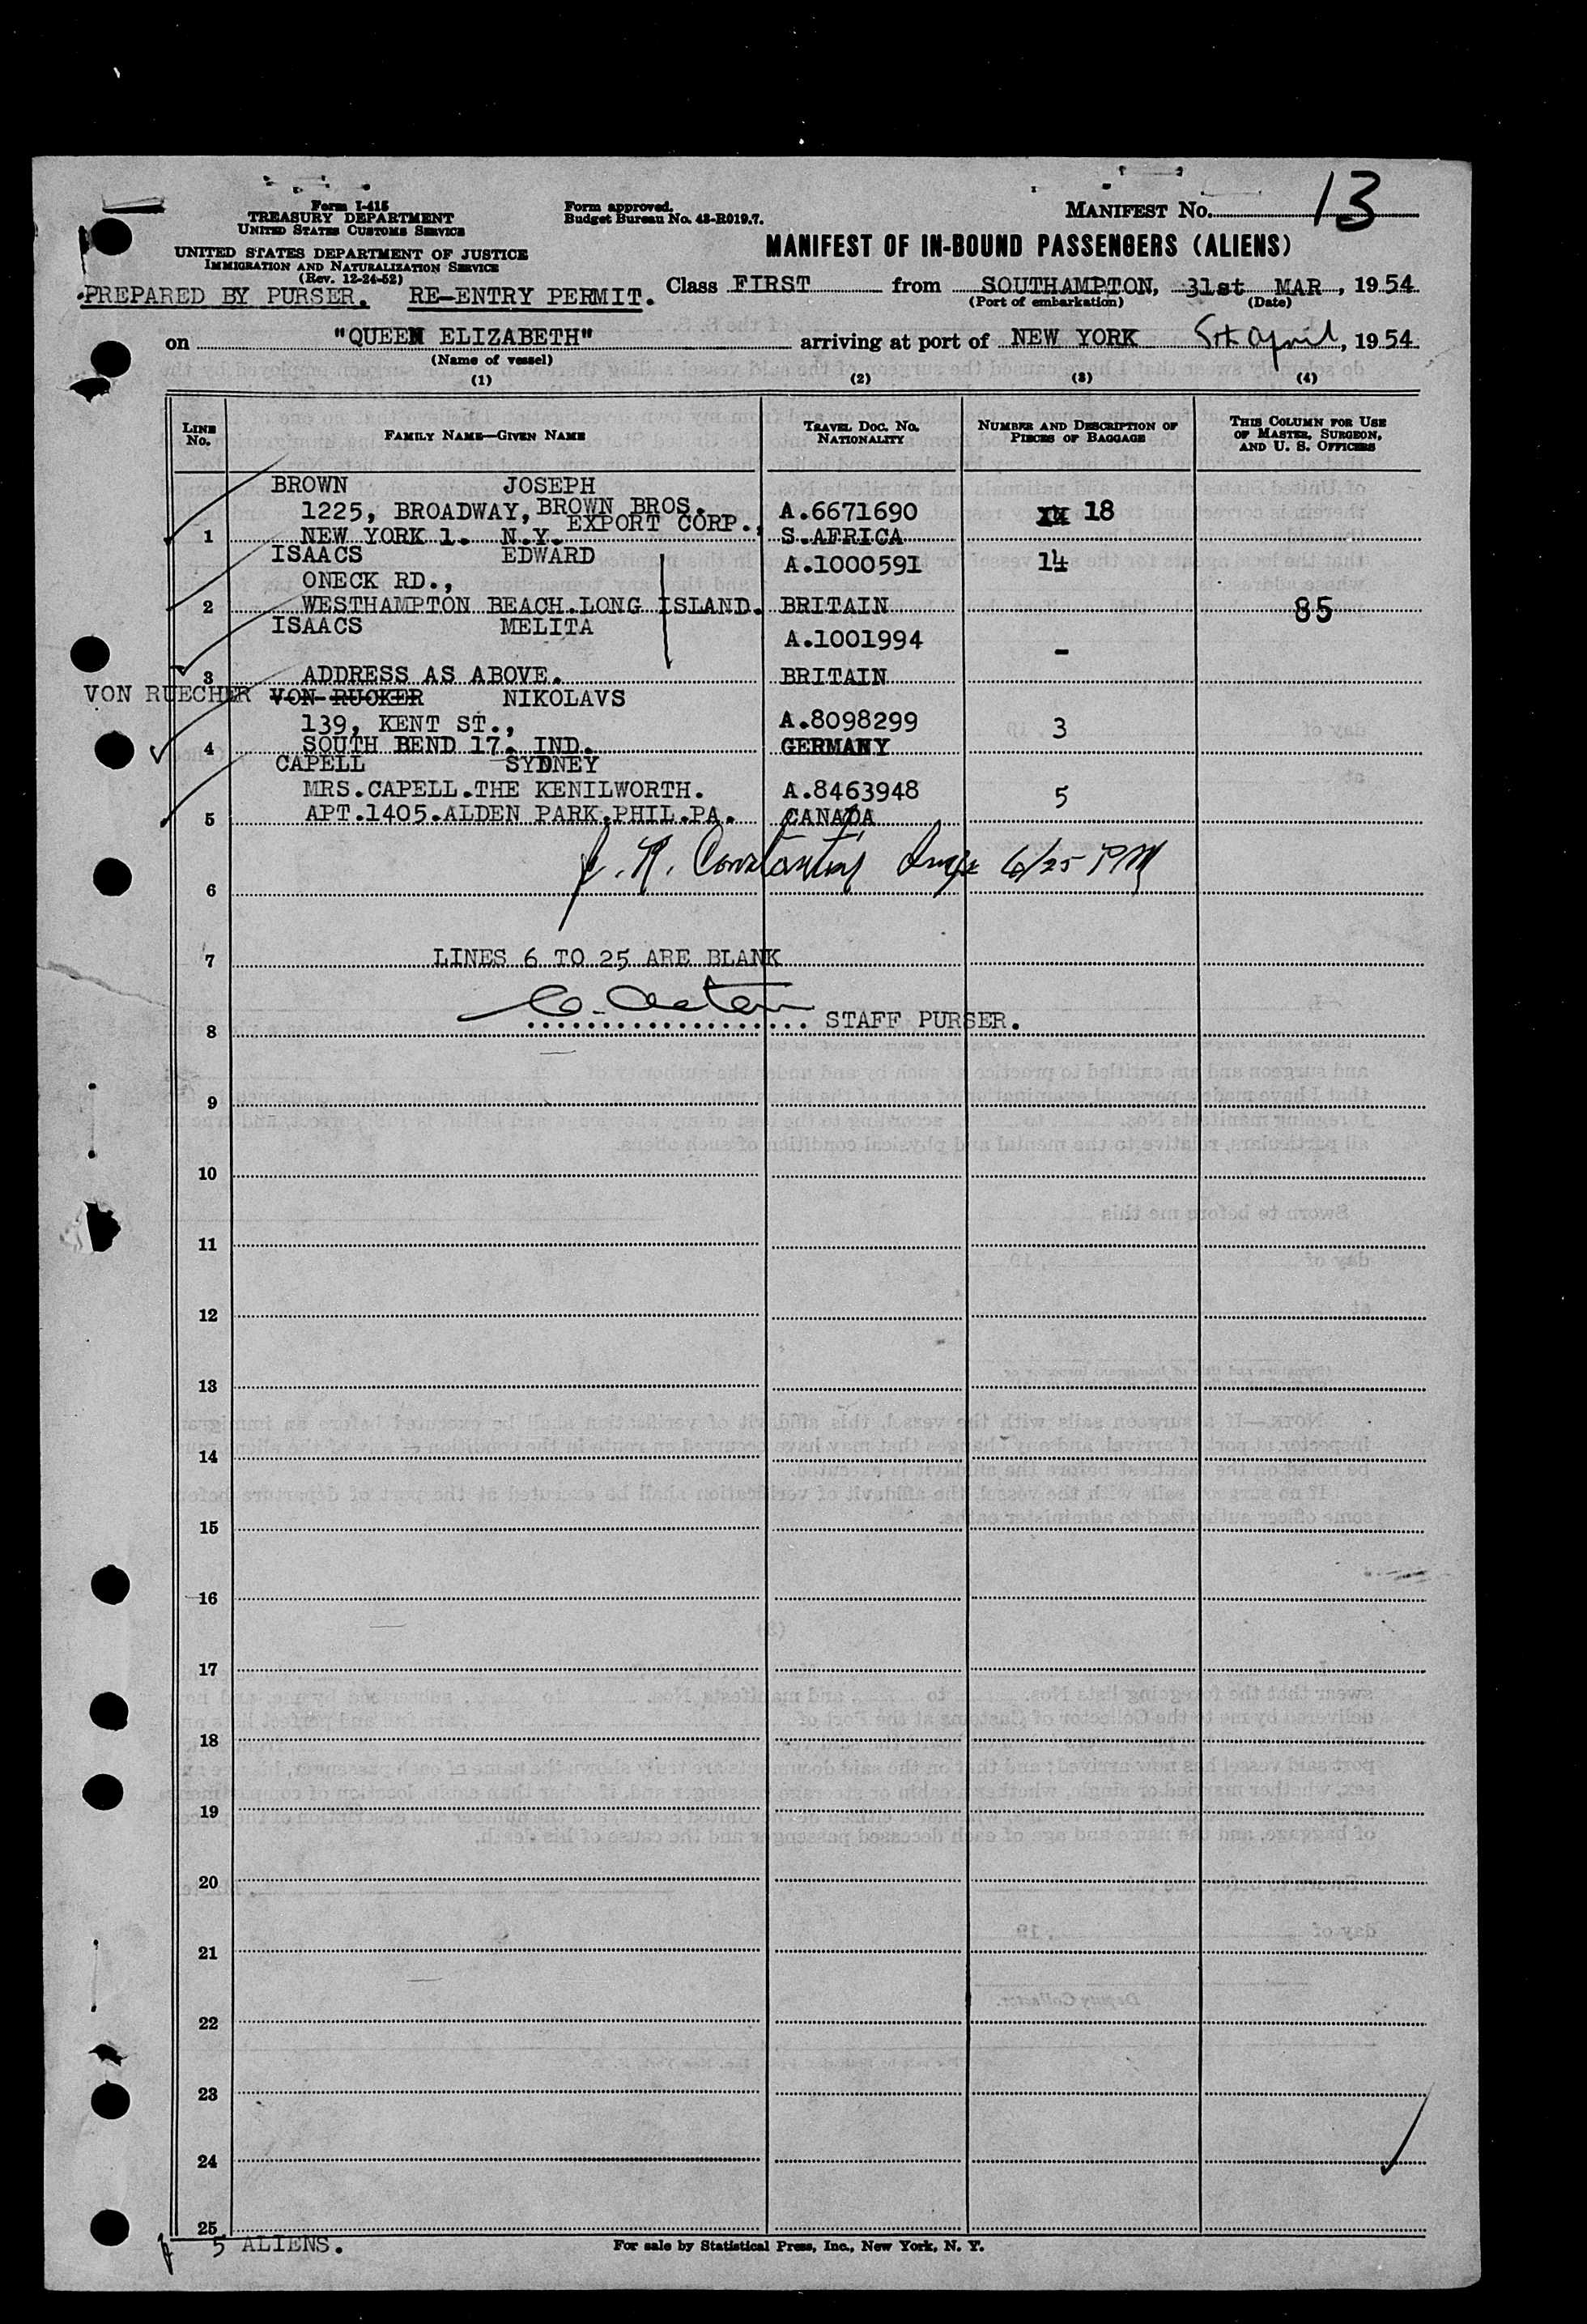 13
Form I-415
TREASURY DEPARTMENT
UNITED STATES CUSTOMS SERVICE
Form approved.
Budget Bureau No. 43-R019.7.
MANIFEST NO.
UNITED STATES DEPARTMENT OF JUSTICE
IMMIGRATION AND NATURALIZATION SERVICE
(Rev. 12-24-52)
MANIFEST OF IN-BOUND PASSENGERS (ALIENS)
PREPARED BY PURSER. RE-ENTRY PERMIT.
Class FIRST from SOUTHAMPTON, 31st MAR, 1954
(Port of embarkation) (Date)
on "QUEEN ELIZABETH" arriving at port of NEW YORK 5th April, 1954
(Name of vessel)
(1) (2) (3) (4)
LINE NO.
FAMILY NAME—GIVEN NAME
TRAVEL DOC. NO.
NATIONALITY
NUMBER AND DESCRIPTION OF
PIECES OF BAGGAGE
THIS COLUMN FOR USE
OF MASTER, SURGEON,
AND U. S. OFFICERS
BROWN JOSEPH
1225, BROADWAY, BROWN BROS. A.6671690 18
EXPORT CORP.,
1 NEW YORK 1. N.Y. S.AFRICA
ISAACS EDWARD A.1000591 14
ONECK RD.,
2 WESTHAMPTON BEACH.LONG ISLAND. BRITAIN 85
ISAACS MELITA A.1001994 -
3 ADDRESS AS ABOVE. BRITAIN
VON RUECHER VON RUCKER NIKOLAVS
139, KENT ST., A.8098299 3
4 SOUTH BEND 17. IND. GERMANY
CAPELL SYDNEY
MRS.CAPELL.THE KENILWORTH. A.8463948 5
5 APT.1405.ALDEN PARK.PHIL.PA. CANADA
6/25 PM
6
7 LINES 6 TO 25 ARE BLANK
8 STAFF PURSER.
9
10
11
12
13
14
15
16
17
18
19
20
21
22
23
24
25
5 ALIENS.
For sale by Statistical Press, Inc., New York, N. Y.